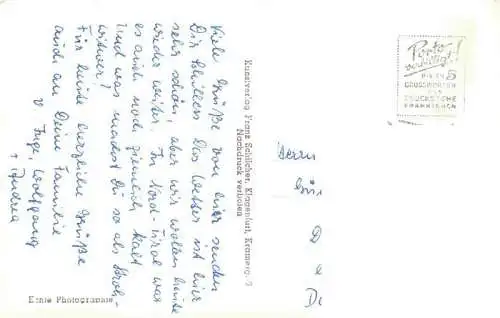 Viele Grüße von hier senden
Dir Das Wetter ist hier
sehr schön, aber wir wollen heute
wieder weiter. In Nord-Tirol war
es auch noch ziemlich kalt
Und was machst Du so als Stroh-
witwer?
Für heute herzliche Grüße
auch an Deine Familie
v. Inge, Wolfgang
+ Andrea
Echte Photographie
Kunstverlag Franz Schilcher, Klagenfurt, Kramerg. 7
Nachdruck verboten
Porto
verbilligt!
BIS ZU 5
GRUSSWORTEN
ALS
DRUCKSACHE
FRANKIEREN
Herrn
D